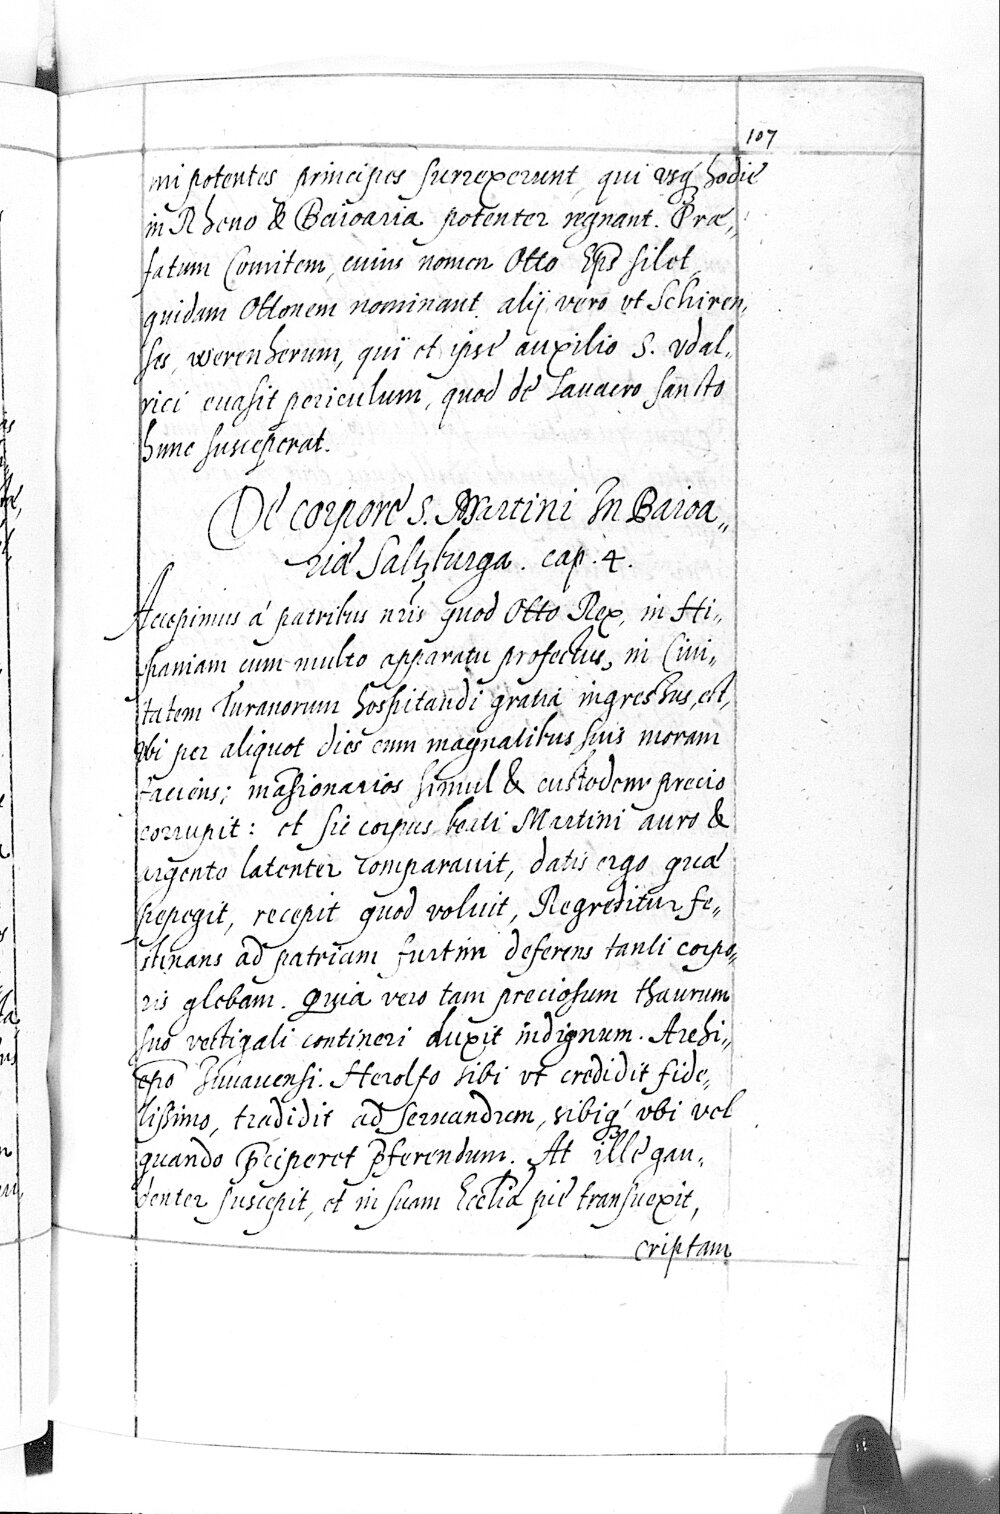 107
mi potentes principes surrexerunt, qui vsq́ hodie
in Rheno & Baioaria potenter regnant. Præ„
fatum Comitem, cuius nomen Otto Eps̃ silet,
quidam Ottonem nominant, alij vero vt Schiren„
ses, werenherum, qui et ipse auxilio S. vdal„
rici euasit periculum, quod de Lauacro sancto
hunc susceperat.
De corpore S. Martini In Baioa„
ria Saltzburga. cap. 4.
Accepimus á patribus nr̃is quod Otto Rex, in Hi„
spaniam cum multo apparatu profectus, in Ciui„
tatem Turanorum hospitandi gratia ingressus, est,
vbi per aliquot dies cum magnatibus suis moram
faciens; masionarios simul & custodem precio
corrupit: et sic corpus beati Martini auro &
argento latenter comparauit, datis ergo quæ
pepegit, recepit quod voluit, Regreditur fe„
stinans ad patriam furtim deferens tanti corpo„
ris glebam. Quia vero tam preciosum thaurum
suo vectigali contineri duxit indignum. Archi„
ep̃o Iuuauensi. Herolfo sibi vt credidit fide„
lissimo, tradidit ad seruandum, sibiq́ vbi vel
quando p̃ciperet p̃ferendum. At ille gau„
denter suscepit, et in suam Eccl̃ia pie transuexit,
criptam